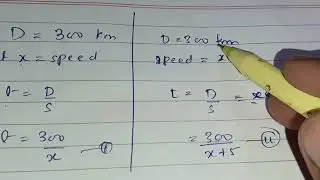 D = 300 km
t x = speed
t = D/S
t = 300/x — (i)
D = 300 km
speed = x
t = D/S = x
= 300/(x+5) (ii)